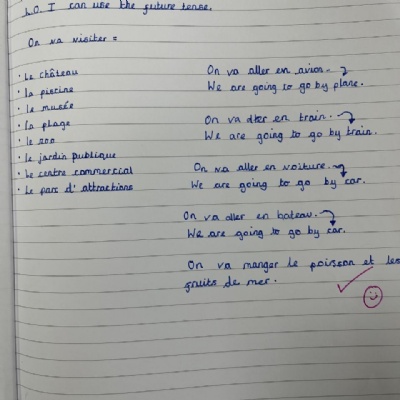 L.O. I can use the future tense.
On va visiter =
• Le château
• la piscine
• le musée
• la plage
• le zoo
• le jardin publique
• Le centre commercial
• Le parc d'attractions
On va aller en avion.
We are going to go by plane.
On va aller en train.
We are going to go by train.
On va aller en voiture.
We are going to go by car.
On va aller en bateau.
We are going to go by car.
On va manger le poisson et les
fruits de mer.